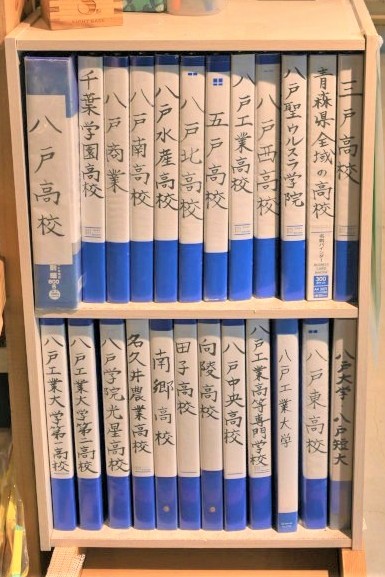 八戸高校
千葉学園高校
八戸商業
八戸南高校
八戸水産高校
八戸北高校
五戸高校
八戸工業高校
八戸西高校
八戸聖ウルスラ学院
青森県全域の高校
三戸高校
八戸工業大学第一高校
八戸工業大学第二高校
八戸学院光星高校
名久井農業高校
南郷高校
田子高校
向陵高校
八戸中央高校
八戸工業高等専門学校
八戸工業大学
八戸東高校
八戸大学・八戸短大